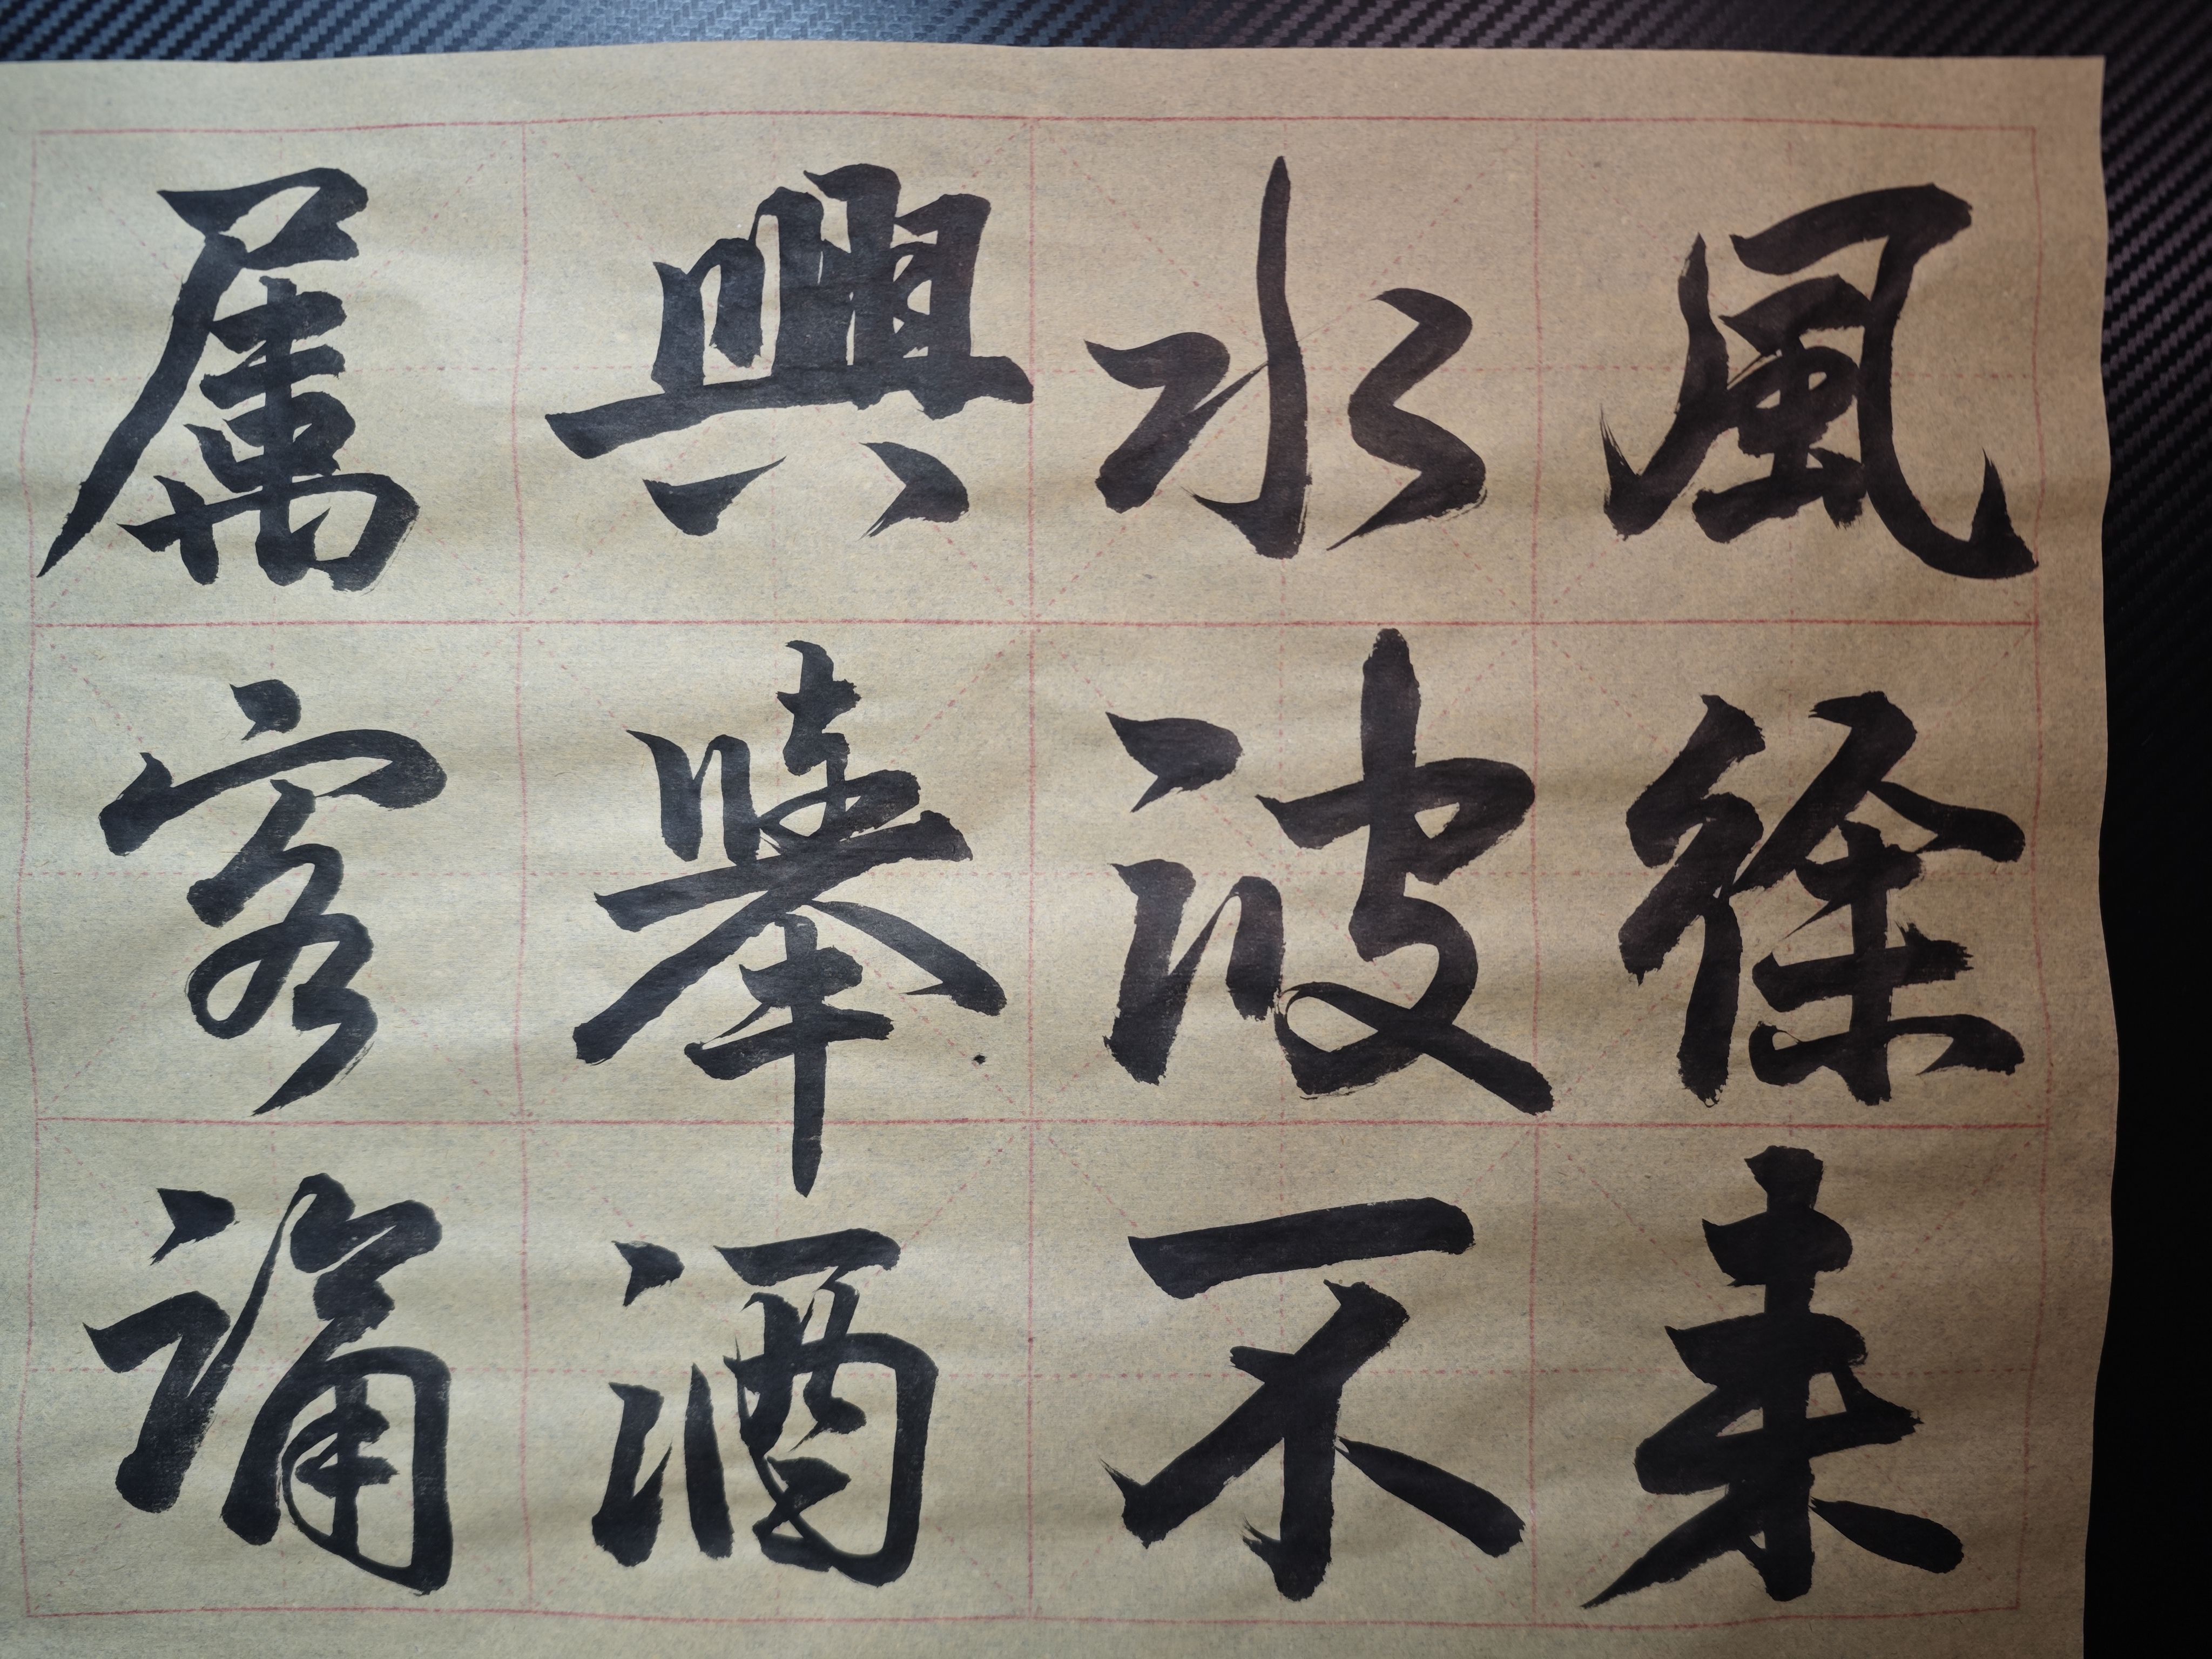 風徐来
水波不
興舉酒
属客誦